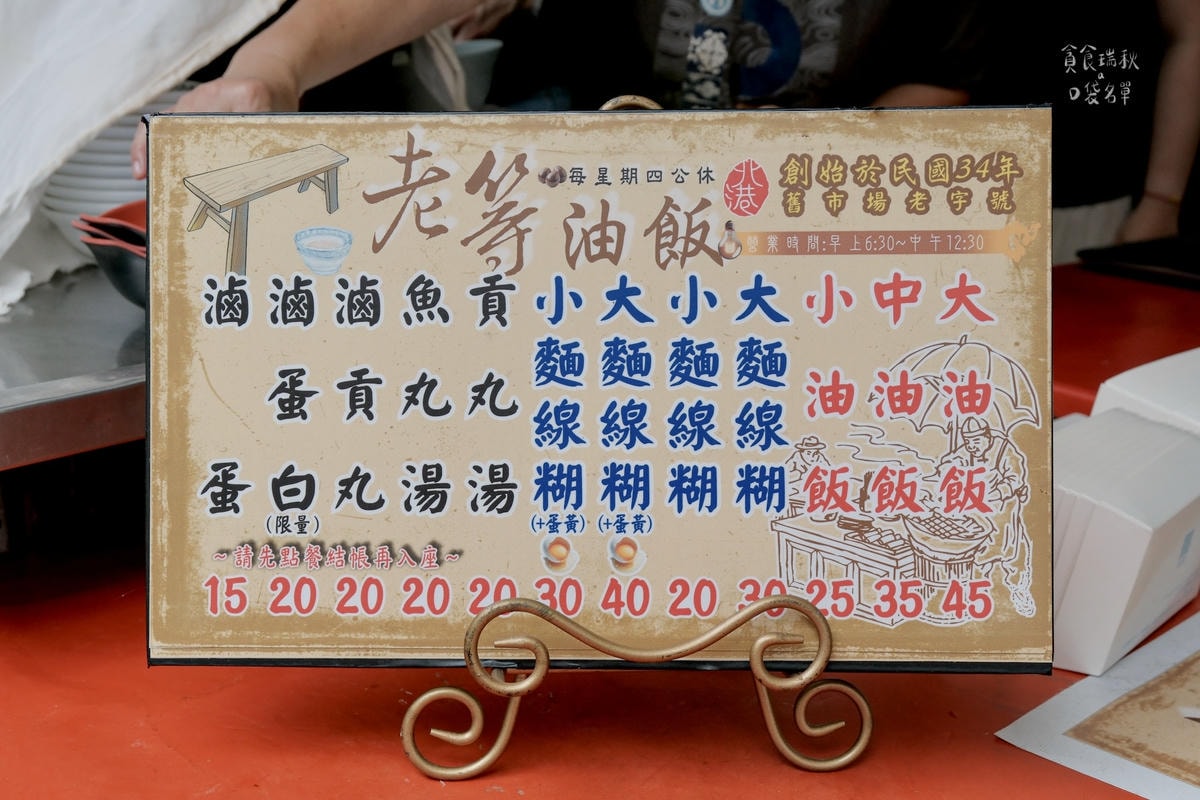 貪食瑞秋
a
口袋名單
老等油飯
每星期四公休
北港
創始於民國34年
舊市場老字號
營業時間:早上6:30~中午12:30
大油飯 45
中油飯 35
小油飯 25
大麵線糊 30
小麵線糊 20
大麵線糊(+蛋黃) 40
小麵線糊(+蛋黃) 30
貢丸湯 20
魚丸湯 20
滷貢丸 20
滷蛋白(限量) 20
滷蛋 15
~請先點餐結帳再入座~